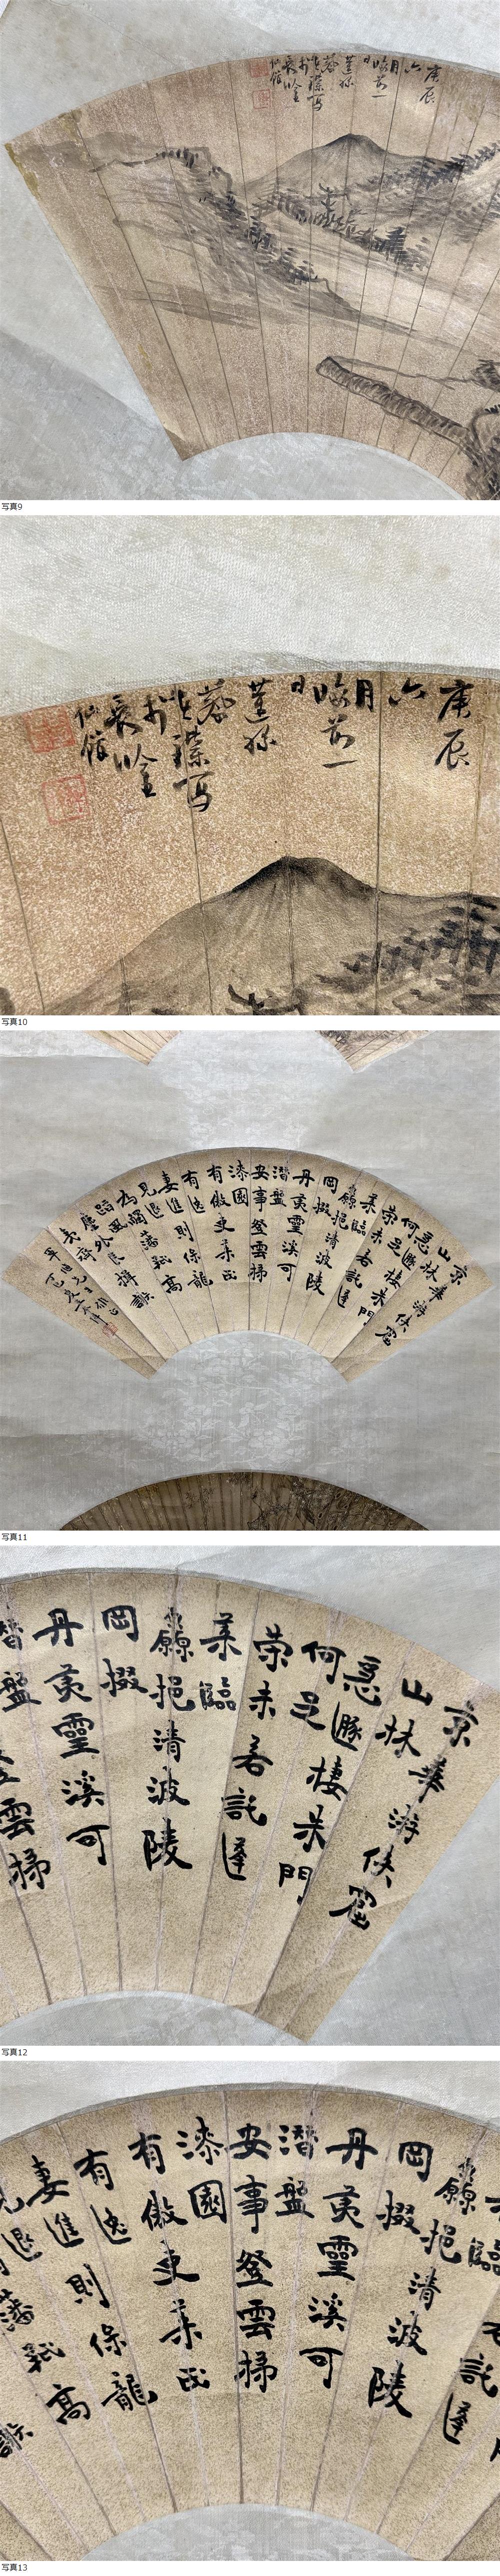 庚辰
六
月
晦前一
日
蓮孫
寫
於
仙館
写真9
庚辰
六
月
晦前一
日
蓮孫
寫
於
仙館
写真10
京華游俠窟
山林
㥯遯棲朱門
何足
榮未若託蓬
萊臨
源挹清波陵
岡掇
丹荑靈溪可
潛盤
安事登雲梯
漆園
有傲吏萊氏
有逸
妻進則保龍
見退
為觸藩羝高
蹈風
塵外長揖謝
夷齊
写真11
京華游俠窟
山林
㥯遯棲朱門
何足
榮未若託蓬
萊臨
源挹清波陵
岡掇
丹荑靈溪可
潛盤
登雲梯
写真12
源挹清波陵
岡掇
丹荑靈溪可
潛盤
安事登雲梯
漆園
有傲吏萊氏
有逸
妻進則保龍
見退
藩羝高
写真13